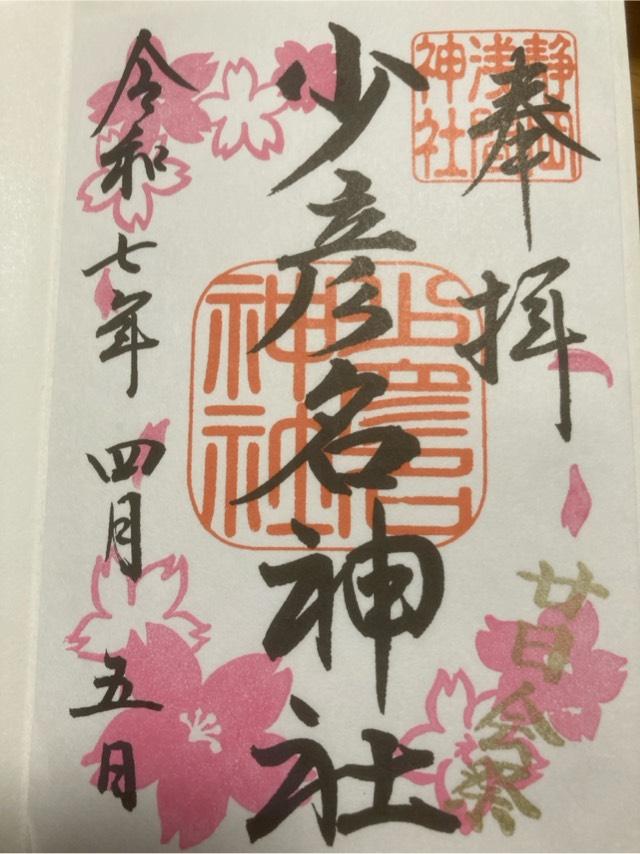 奉拝
静岡
浅間
神社
廿日会祭
少彦名神社
少彦名
神社
令和七年四月五日